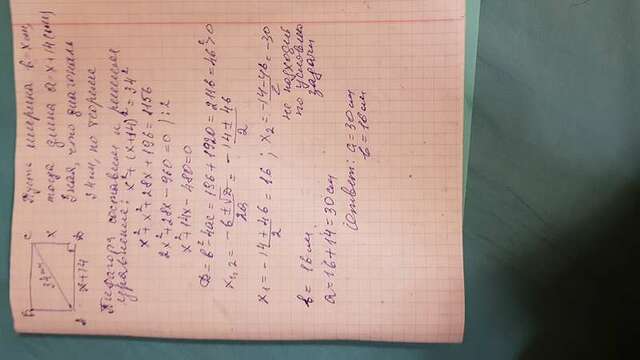 B C
34см x
A x+14 D
Пусть ширина b = x см,
тогда длина a = x+14 (см)
Зная, что диагональ
34 см, по теореме
Пифагора составим и решаем
уравнение: x² + (x+14)² = 34²
x² + x² + 28x + 196 = 1156
2x² + 28x - 960 = 0 ) : 2
x² + 14x - 480 = 0
D = b² - 4ac = 196 + 1920 = 2116 = 46² > 0
x₁,₂ = -b ± √D / 2a = -14 ± 46 / 2
x₁ = -14 + 46 / 2 = 16 ; x₂ = -14 - 46 / 2 = -30
не подходит
по условию
задачи
b = 16 см.
a = 16 + 14 = 30 см
Ответ: a = 30 см
b = 16 см